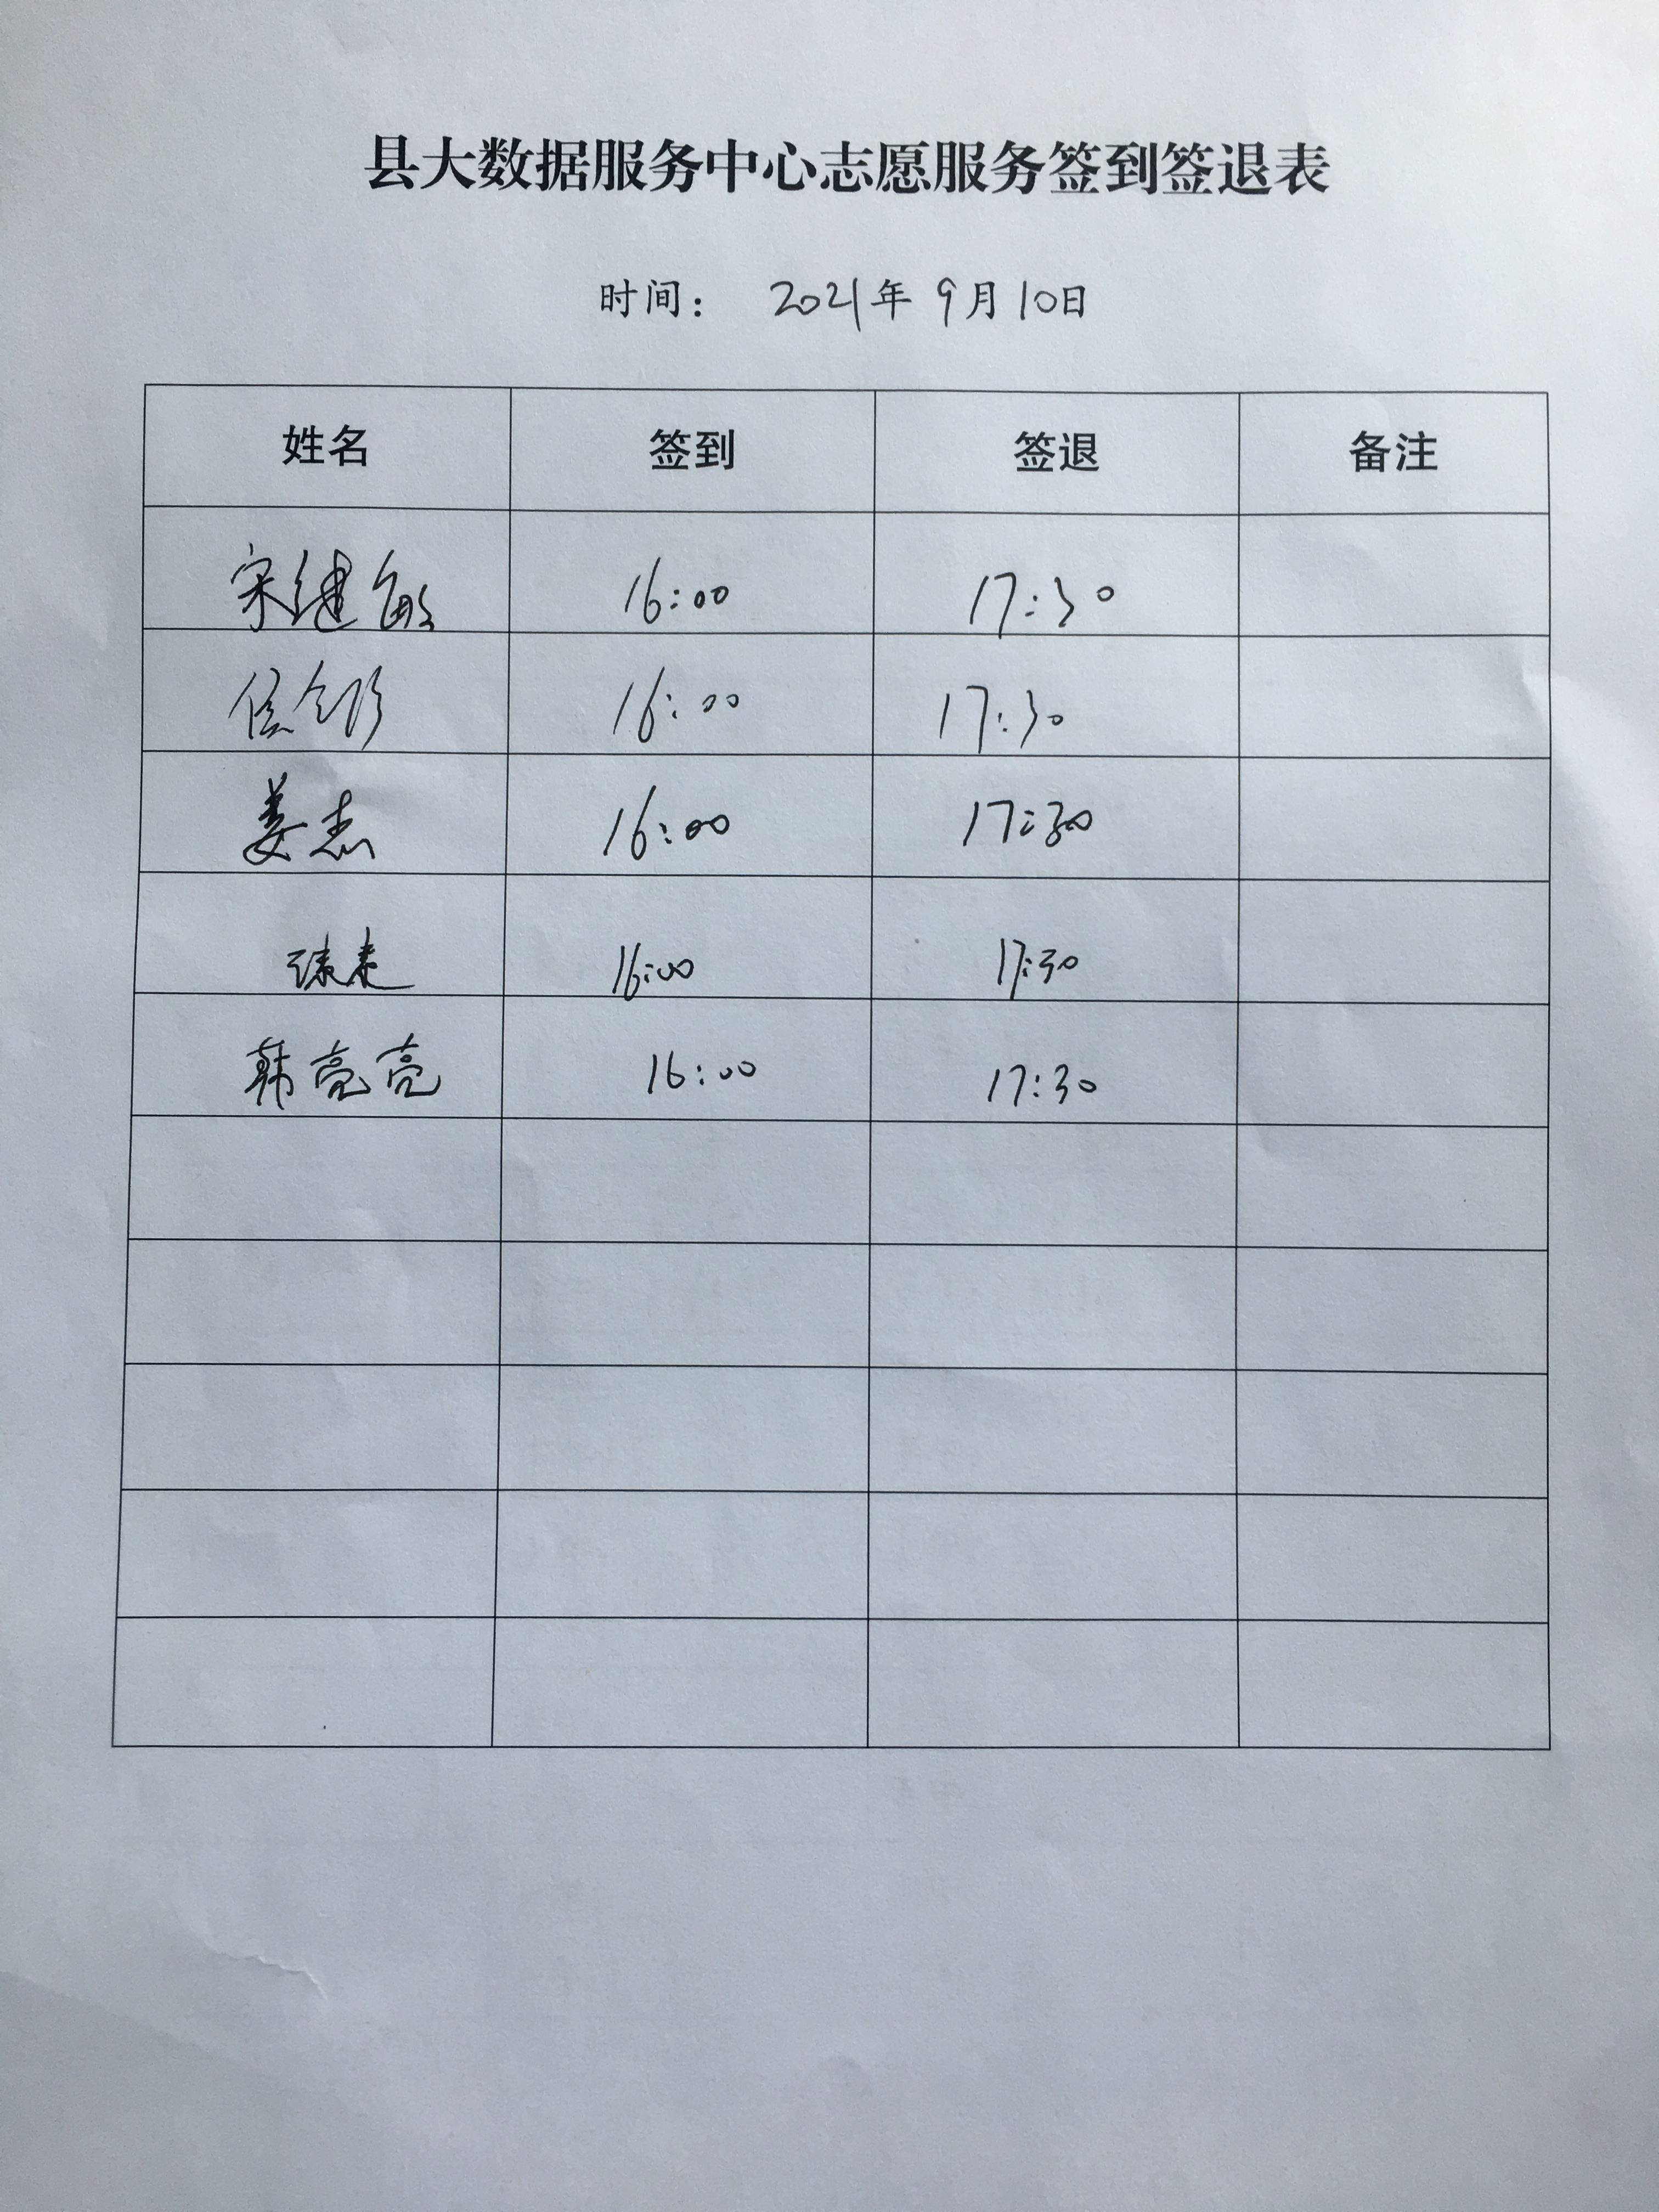 县大数据服务中心志愿服务签到签退表
时间： 2021年 9月 10日
姓名 签到 签退 备注
宋建敏 16:00 17:30
16:00 17:30
姜杰 16:00 17:30
16:00 17:30
韩亮亮 16:00 17:30